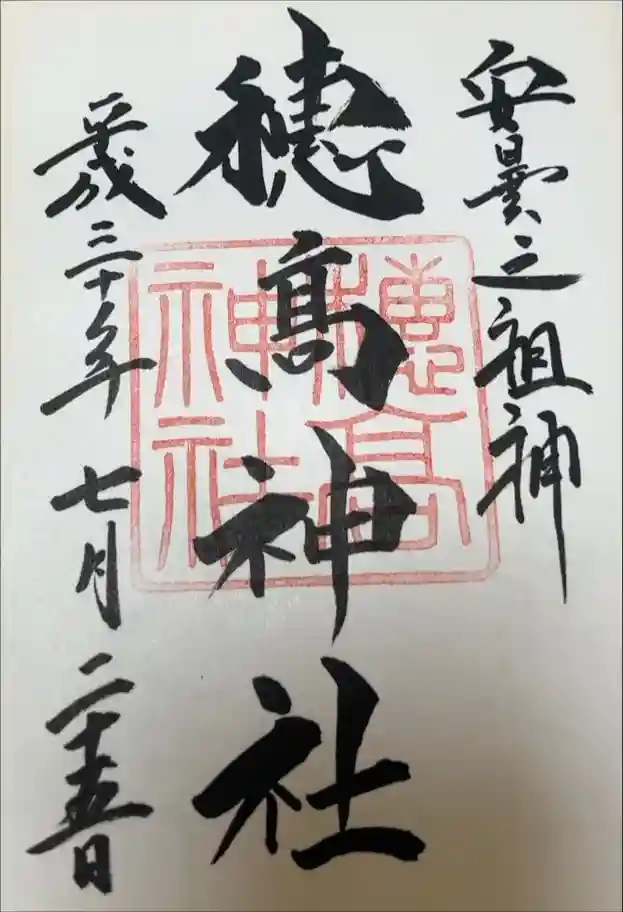 安曇之祖神
穂髙神社
穂高神社
平成三十年七月二十五日